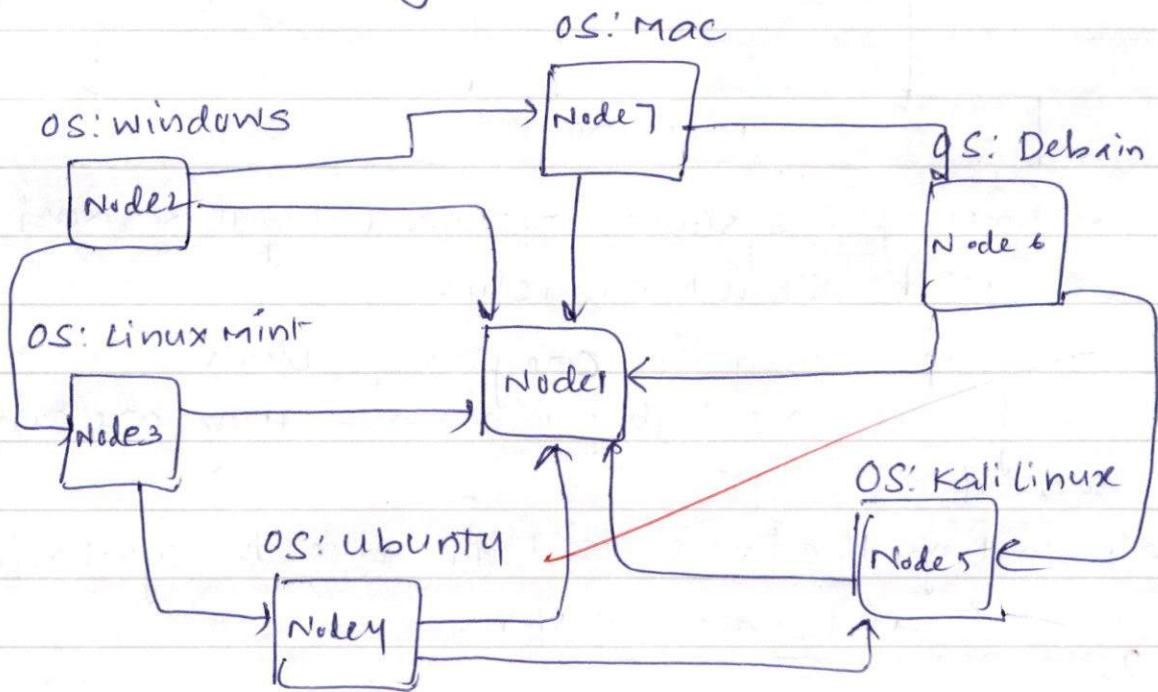 OS: Mac
Node7
OS: Windows
Node2
OS: Debain
Node 6
OS: Linux mint
Node1
Node3
OS: Kali Linux
OS: Ubunty
Node5
Node4